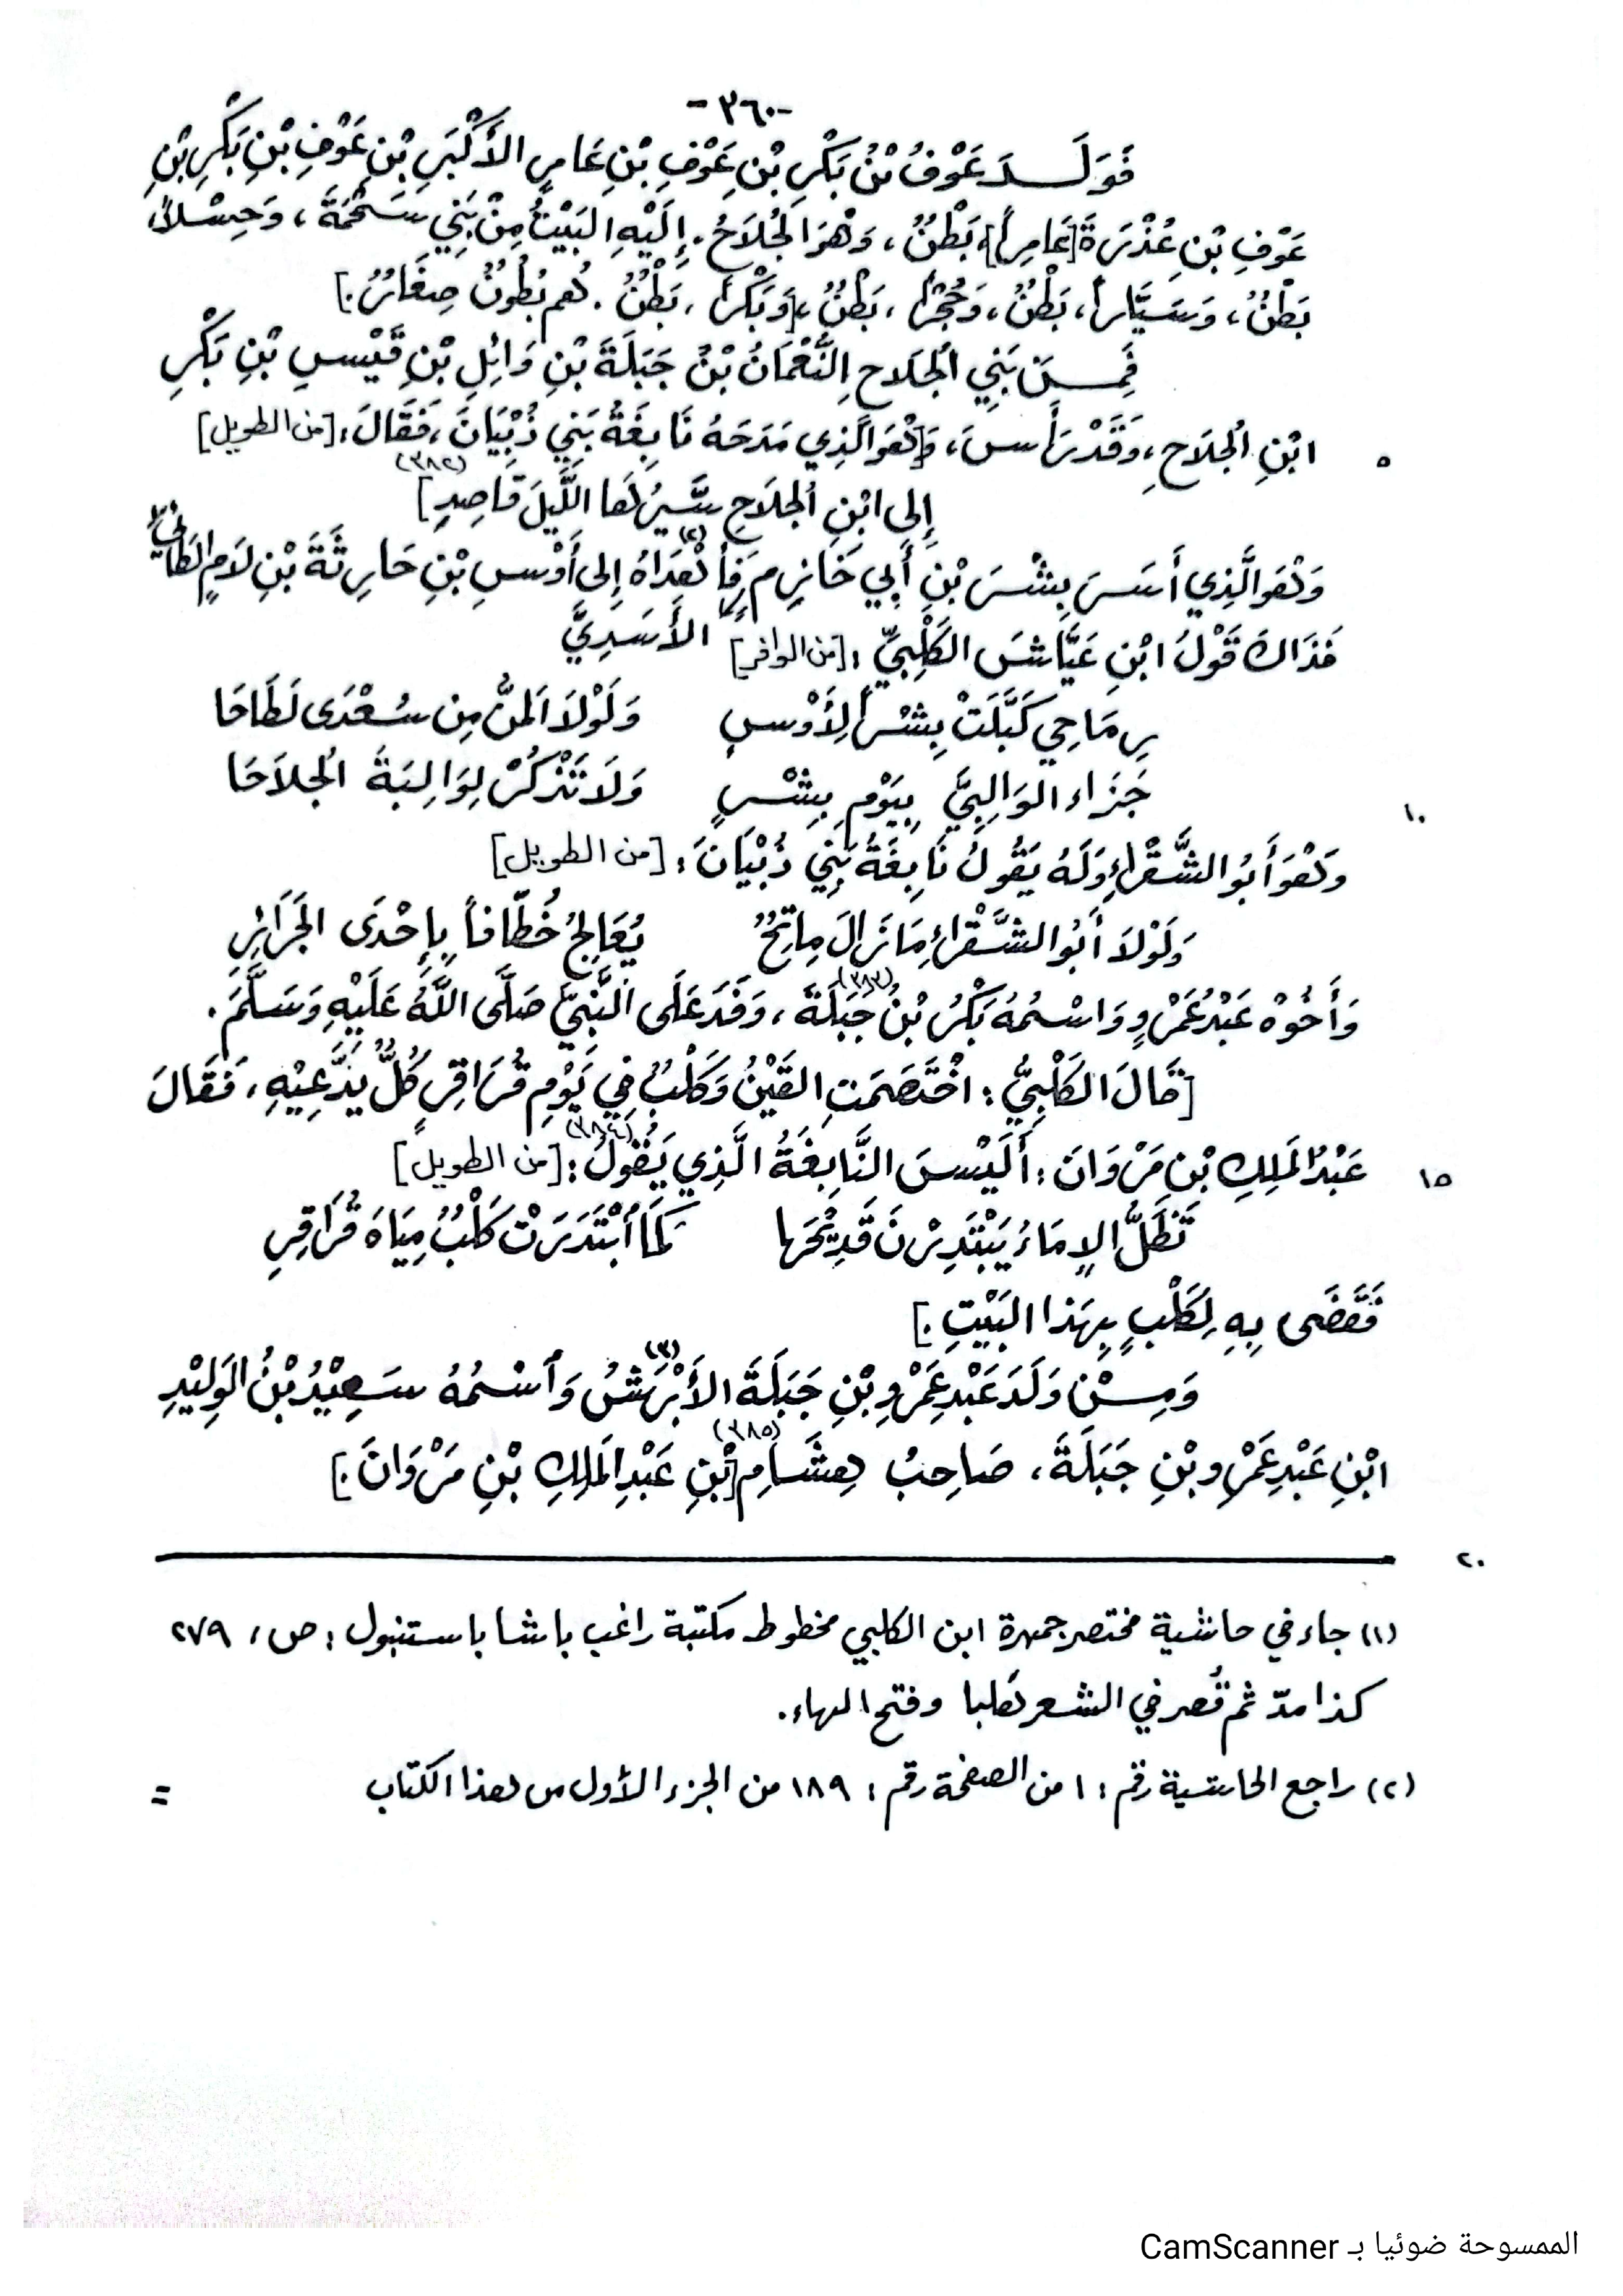 -٣٦٠-
فَوَلَدَ عَوْفُ بْنُ بَكْرِ بْنِ عَوْفِ بْنِ عَامِرٍ الأَكْبَرِ بْنِ عَوْفِ بْنِ بَكْرِ بْنِ
عَوْفِ بْنِ عُذْرَةَ [عَامِراً]، بَطْنٌ، وَهْوَ الجُلاَحُ. إِلَيْهِ البَيْتُ مِنْ بَنِي سَحْمَةَ، وَحِسْلاً،
بَطْنٌ، وَسَيَّاراً، بَطْنٌ، وَحُجْراً، بَطْنٌ، [وَبَكْراً، بَطْنٌ. هُم بُطُونٌ صِغَارٌ.]
فَمِـنْ بَنِي الْجُلاحِ النُّعْمَانُ بْنُ جَبَلَةَ بْنِ وَائِلِ بْنِ قَيْسِ بْنِ بَكْرِ
٥ ابْنِ الْجُلاَحِ، وَقَدْ رَأَسَ، وَ[هْوَ الَّذِي مَدَحَهُ نَابِغَةُ بَنِي ذُبْيَانَ، فَقَالَ: [من الطويل] (٣٨٢)
إِلى ابْنِ الْجُلاَحِ سَيْرُهَا اللَّيلَ قَاصِدِ]
وَهْوَ الَّذِي أَسَرَ بِشْرَ بْنِ أَبِي خَازِمٍ فَأَهْدَاهُ (٢) إِلى أَوْسِ بْنِ حَارِثَةَ بْنِ لاَمٍ الطَائِيِّ
الأَسَدِيَّ
فَذَاكَ قَوْلُ ابْنِ عَيَّاشَ الكَلْبِيِّ: [من الوافر]
رِمَاحِي كَبَّلَتْ بِشْراً لِأَوْسٍ وَلَوْلاَ المَنُّ مِن سُعْدَى لَطَاحَا
١٠ جَزَاء الوَالِبِيَّ بِيَوْمِ بِشْرٍ وَلاَ تَذْكُرْ لِوَالِبَةَ الْجلاَحَا
وَهْوَ أَبُو الشَّقْرَاءِ وَلَهُ يَقُولُ نَابِغَةُ بَنِي ذُبْيَانَ: [من الطويل]
وَلَوْلاَ أَبُو الشَّقْرَاءِ مَا زَالَ مِاتِحٌ يُعَالِجُ خُطَّافاً بِإِحْدَى الجَرَائِرِ
وَأَخُوْهُ عَبْدُ عَمْرٍو وَاسْمُهُ بَكْرُ بْنُ جَبَلَةَ (٣٨٣)، وَفَدَ عَلَى النَّبِيِّ صَلَّى اللَّهُ عَلَيْهِ وَسَلَّمَ.
[قَالَ الكَلْبِيُّ: اخْتَصَمَتِ القَيْنُ وَكَلْبٌ فِي يَوْمِ قُرَاقِرٍ كُلٌّ يَدَّعِيْهِ، فَقَالَ
١٥ عَبْدُ المَلِكِ بْنِ مَرْوَانَ: أَلَيْسَ النَّابِغَةُ الَّذِي يَقُولُ (٣٨٤): [من الطويل]
تَظَلُّ الإِمَاءُ يَبْتَدِرْنَ قَدِيْحَهَا كَمَا أبْتَدَرَتْ كَلْبٌ مِيَاهَ قُرَاقِرِ
فَقَضَى بِهِ لِكَلْبٍ بِهَذا البَيْتِ.]
وَمِـنْ وَلَدَ عَبْدِ عَمْرِو بْنِ جَبَلَةَ الأَبْرَشُ (٣) وَأسْمُهُ سَعِيْدُ بْنُ الوَلِيْدِ
ابْنِ عَبْدِ عَمْرِو بْنِ جَبَلَةَ، صَاحِبُ هِشَامِ (٣٨٥) [بْنِ عَبْدِ المَلِكِ بْنِ مَرْوَانَ.]
٢٠
(١) جاء في حاشية مختصر جمهرة ابن الكلبي مخطوط مكتبة راغب باشا باستنبول: ص، ٢٧٩
كذا مدّ ثم قُصر في الشعر وفتح الهاء.
(٢) راجع الحاشية رقم: ١ من الصفحة رقم: ١٨٩ من الجزء الأول من هذا الكتاب =
الممسوحة ضوئيا بـ CamScanner